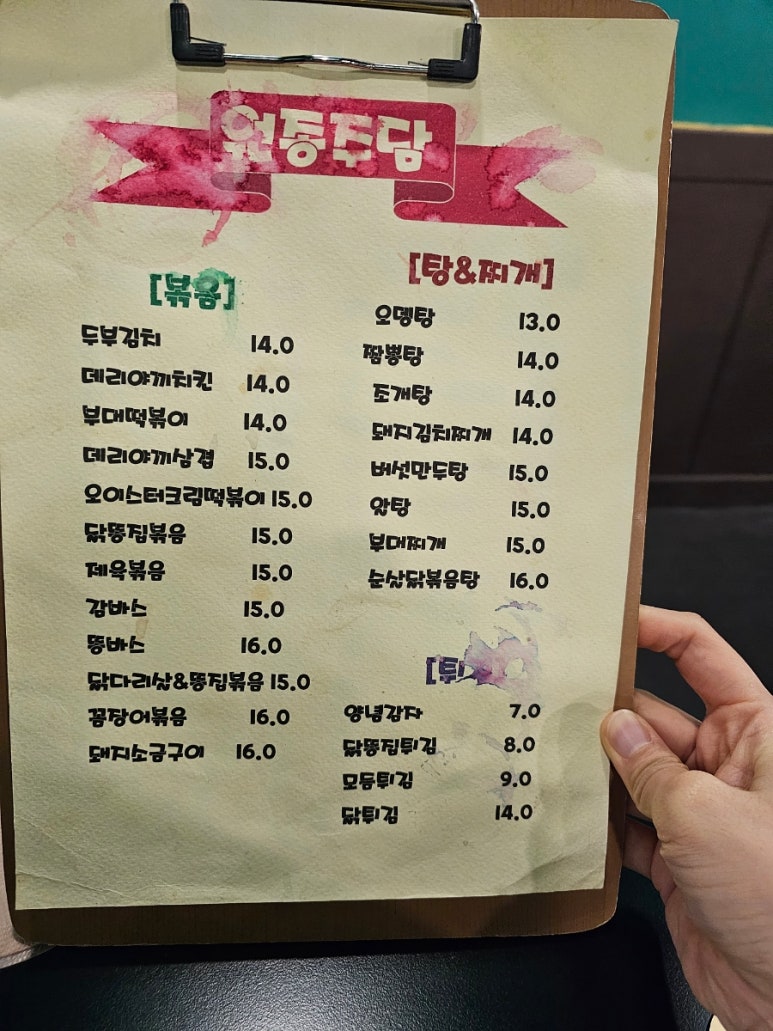 원종주담
[볶음]
두부김치 14.0
데리야끼치킨 14.0
부대떡볶이 14.0
데리야끼삼겹 15.0
오이스터크림떡볶이 15.0
닭똥집볶음 15.0
제육볶음 15.0
감바스 15.0
똥바스 16.0
닭다리살&똥집볶음 15.0
꼼장어볶음 16.0
돼지소금구이 16.0
[탕&찌개]
오뎅탕 13.0
짬뽕탕 14.0
조개탕 14.0
돼지김치찌개 14.0
버섯만두탕 15.0
알탕 15.0
부대찌개 15.0
순살닭볶음탕 16.0
[튀
양념감자 7.0
닭똥집튀김 8.0
모듬튀김 9.0
닭튀김 14.0